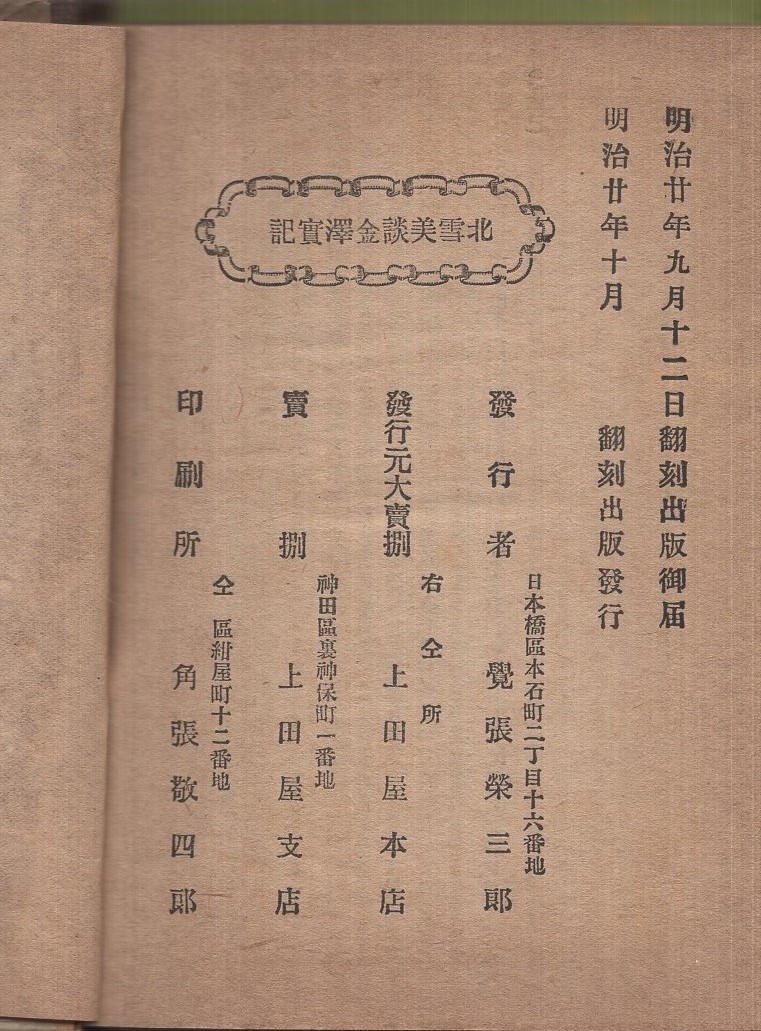 明治廿年九月十二日翻刻出版御届
明治廿年十月 翻刻出版發行
北雪美談金澤實記
日本橋區本石町二丁目十六番地
發行者 覺張榮三郎
右仝所
發行元大賣捌 上田屋本店
神田區裏神保町一番地
賣捌 上田屋支店
仝區紺屋町十二番地
印刷所 角張敬四郎